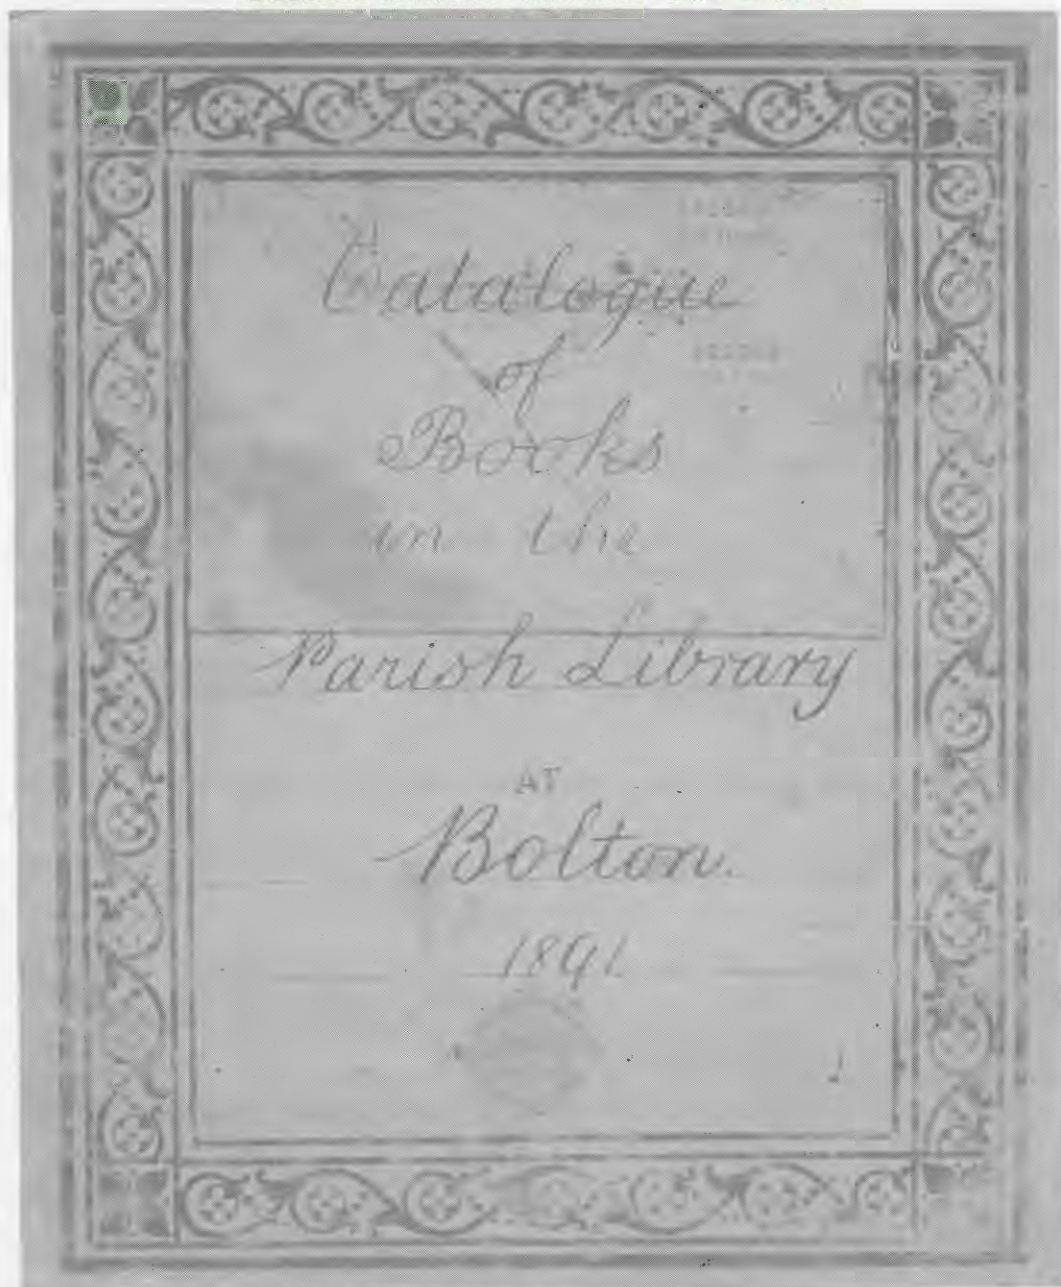 Catalogue
of
Books
in the
Parish Library
AT
Bolton.
1891